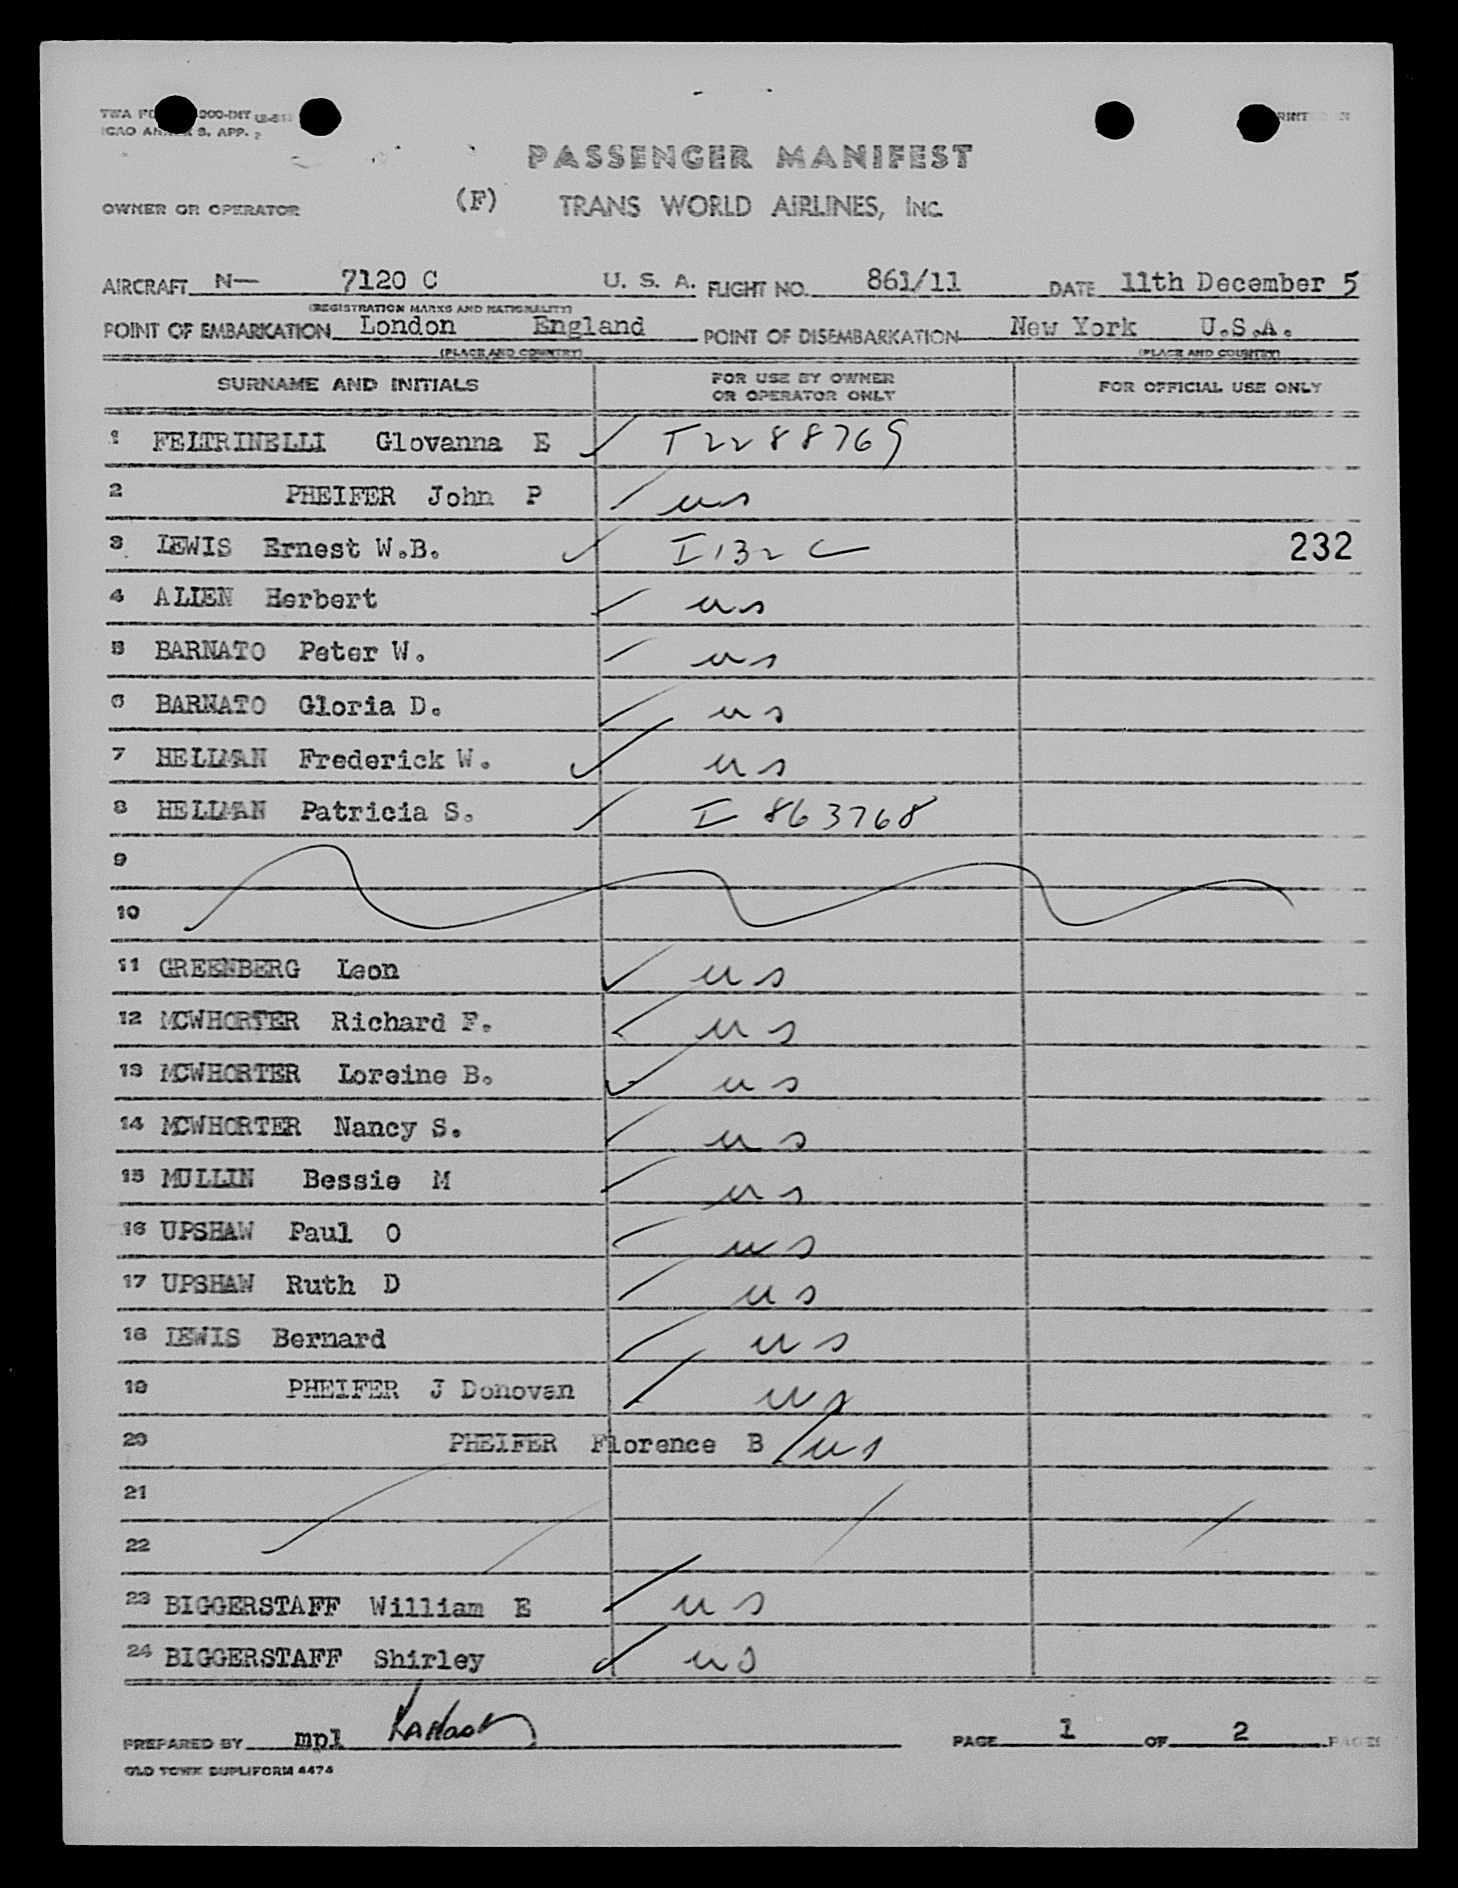 TWA FO 000-INT
ICAO ANNEX 9, APP. 2
PASSENGER MANIFEST
OWNER OR OPERATOR (F) TRANS WORLD AIRLINES, INC.
AIRCRAFT N— 7120 C U. S. A. FLIGHT NO. 861/11 DATE 11th December 5
(REGISTRATION MARKS AND NATIONALITY)
POINT OF EMBARKATION London England POINT OF DISEMBARKATION New York U.S.A.
(PLACE AND COUNTRY) (PLACE AND COUNTRY)
SURNAME AND INITIALS FOR USE BY OWNER OR OPERATOR ONLY FOR OFFICIAL USE ONLY
1 FELTRINELLI Giovanna E I 2288769
2 PHEIFER John P us
3 LEWIS Ernest W.B. I 132 C 232
4 ALLEN Herbert us
5 BARNATO Peter W. us
6 BARNATO Gloria D. us
7 HELLMAN Frederick W. us
8 HELLMAN Patricia S. I 863768
9
10
11 GREENBERG Leon us
12 MCWHORTER Richard F. us
13 MCWHORTER Loreine B. us
14 MCWHORTER Nancy S. us
15 MULLIN Bessie M us
16 UPSHAW Paul O us
17 UPSHAW Ruth D us
18 LEWIS Bernard us
19 PHEIFER J Donovan us
20 PHEIFER Florence B us
21
22
23 BIGGERSTAFF William E us
24 BIGGERSTAFF Shirley us
PREPARED BY mpl PAGE 1 OF 2 PAGES
OLD TOWN DUPLIFORM 4474